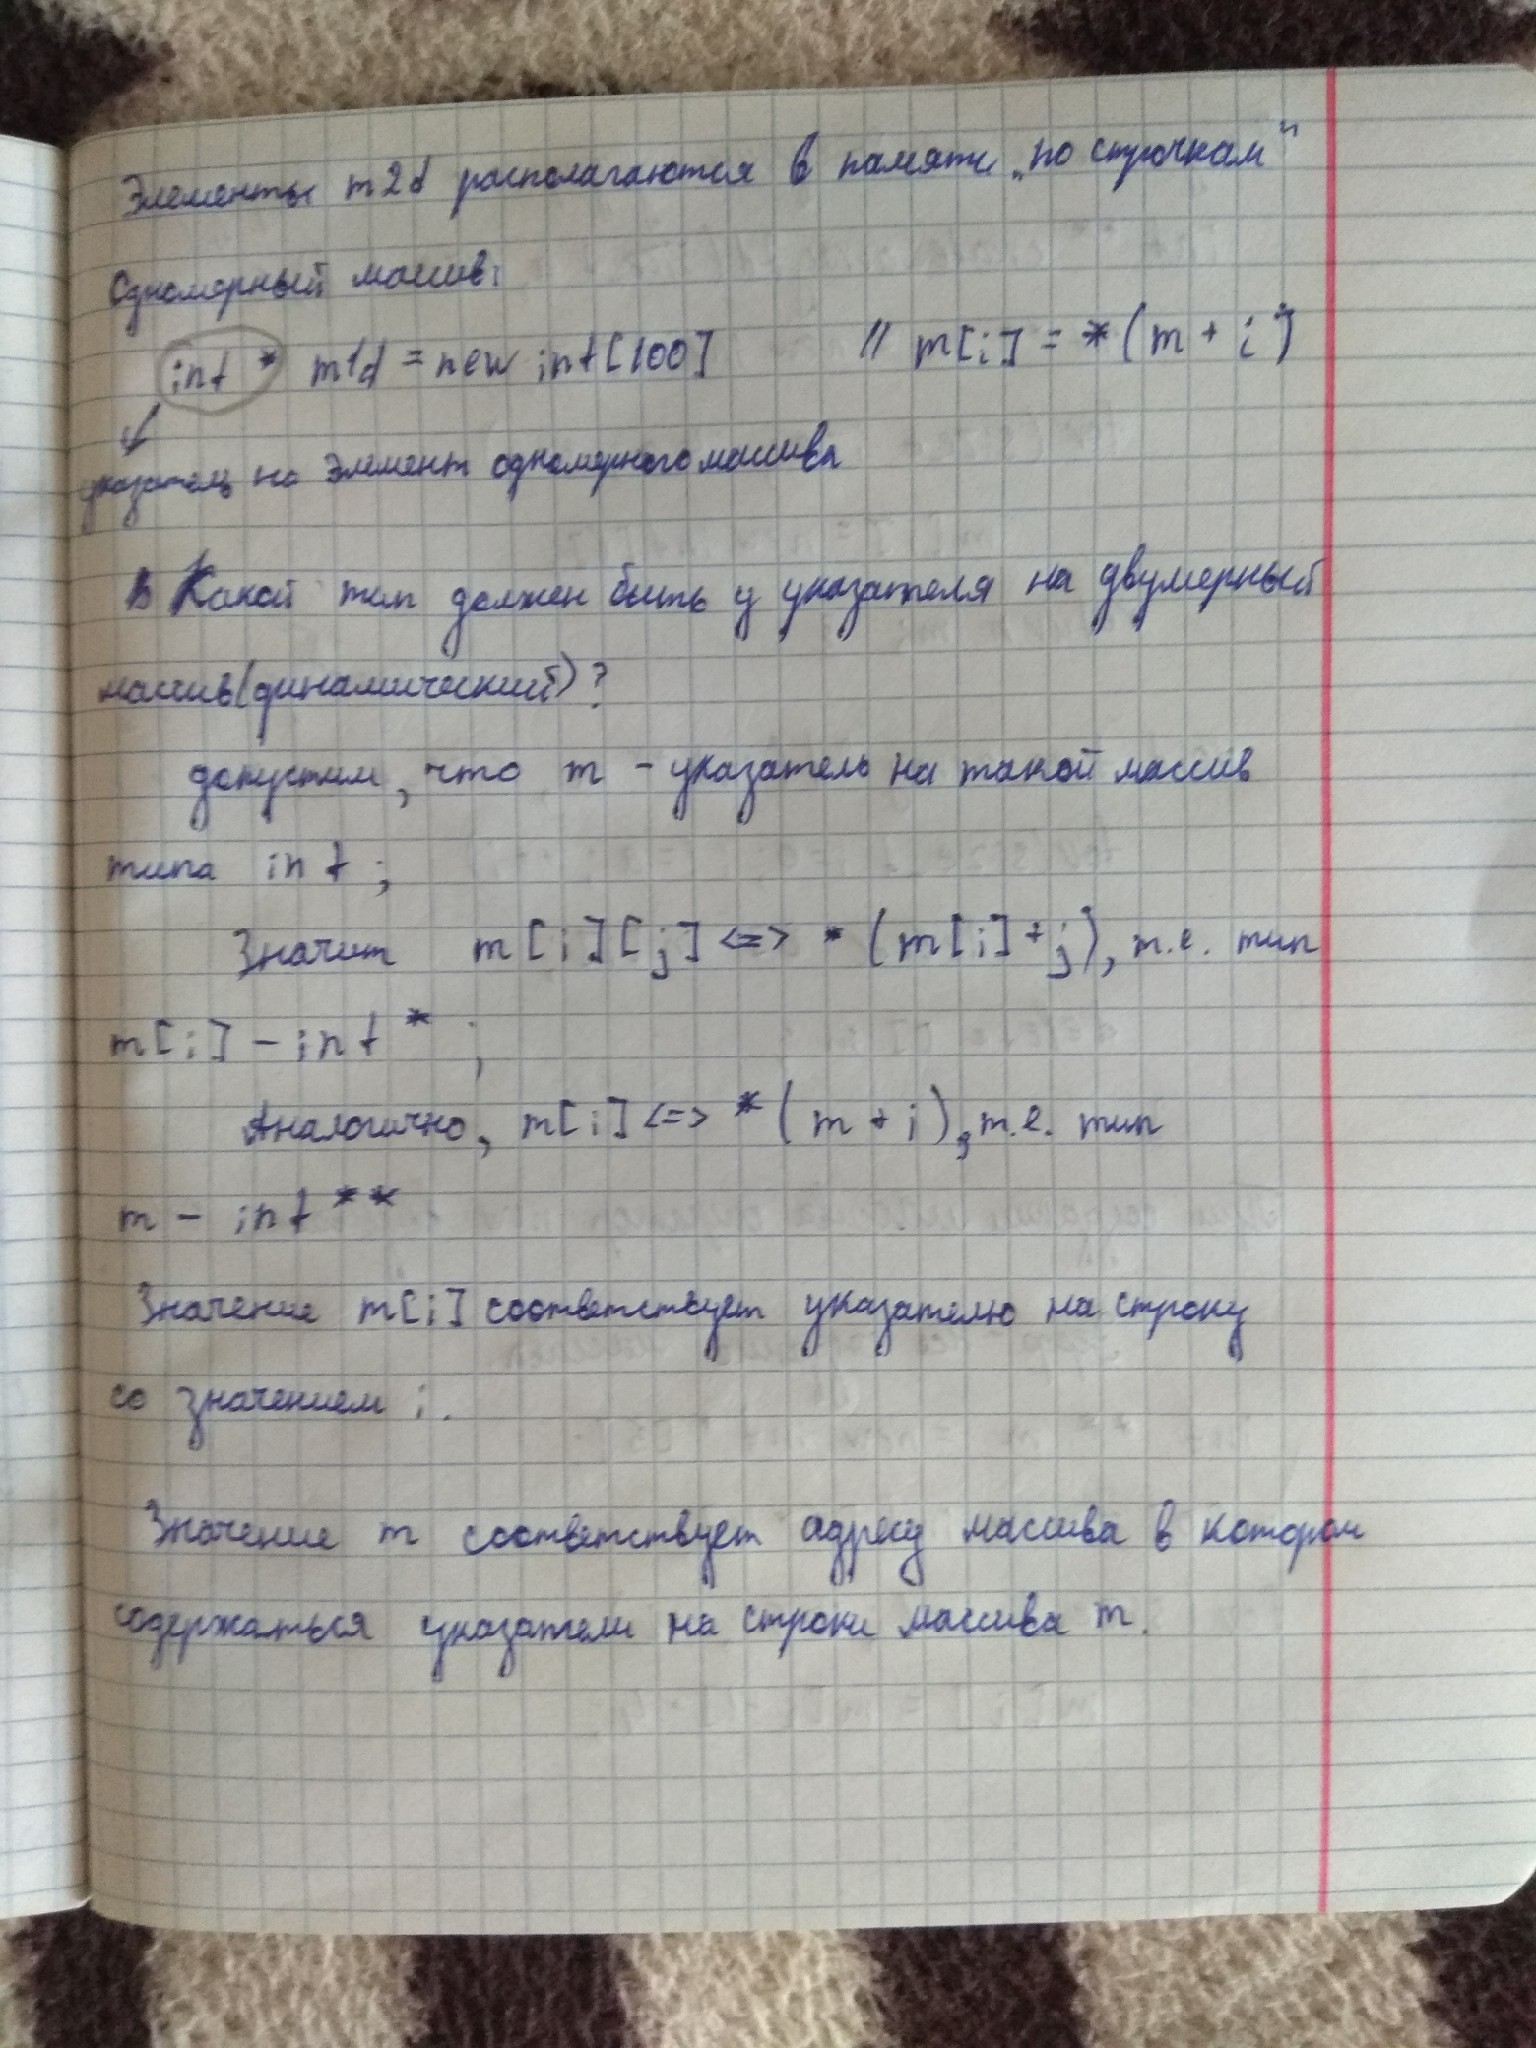 Элементы m2d располагаются в памяти „по строчкам"
Одномерный массив:
int * m1d = new int[100] // m[i] = *(m + i)
указатель на элемент одномерного массива
В Какой тип должен быть у указателя на двумерный
массив(динамический)?
допустим, что m - указатель на такой массив
типа int;
Значит m[i][j] <=> *(m[i]+j), т.е. тип
m[i] - int* ;
Аналогично, m[i] <=> *(m + i), т.е. тип
m - int**
Значение m[i] соответствует указателю на строку
со значением i.
Значение m соответствует адресу массива в котором
содержаться указатели на строки массива m.